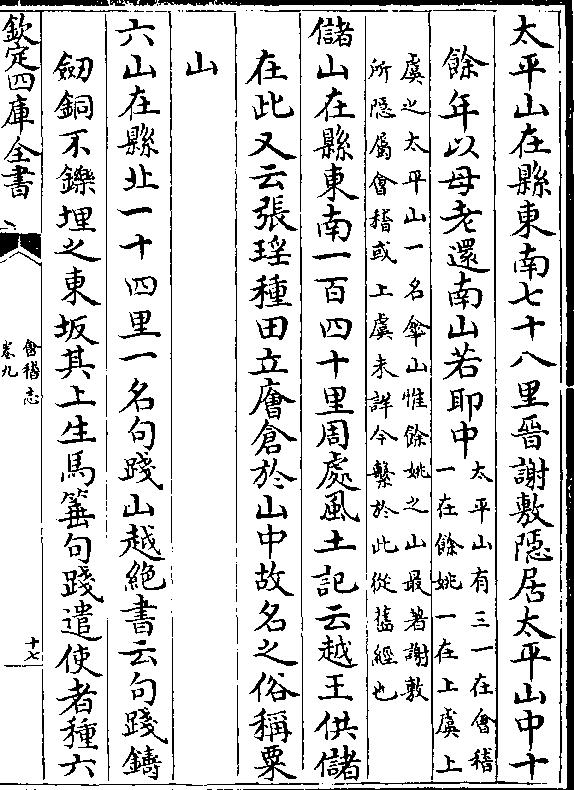 太平山在縣東南七十八里晉謝敷隱居太平山中十
餘年以母老還南山若耶中
太平山有三一在會稽
一在餘姚一在上虞上
虞之太平山一名傘山惟餘姚之山最著謝敷
所隱屬會稽或上虞未詳今繫於此從舊經也
儲山在縣東南一百四十里周處風土記云越王供儲
在此又云張瑶種田立廥倉於山中故名之俗稱粟
山
六山在縣北一十四里一名句踐山越絶書云句踐鑄
銅不鑠埋之東坂其上生馬箠句踐遣使者種六
欽定四庫全書
會稽志
卷九
十七